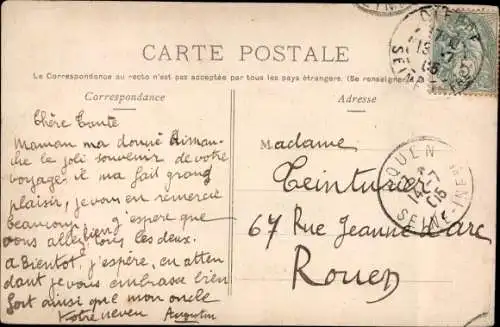 CARTE POSTALE
Le Correspondance au recto n'est pas acceptée par tous les pays étrangers. (Se renseigner
Correspondance
Adresse
Chère Tante
Maman ma donné diman-
che le joli souvenir de votre
voyage. il ma fait grand
plaisir, je vous en remercie
beaucoup j'espère que
vous allez bien tous les deux.
a Bientot, j'espère, en atten
dant je vous embrasse bien
fort ainsi que mon oncle
votre neveu Augustin
Madame
Teinturier
67 Rue Jeanne d'arc
Rouen
ROUEN
14-7
05
SEINE-INFRE
DIEPPE
13-7
05
SEINE